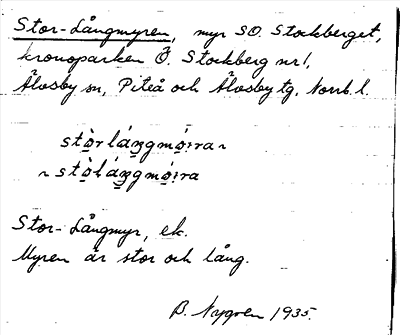 Stor-Långmyren, myr SO. Stockberget,
kronoparken Ö. Stockberg nr 1,
Älvsby sn, Piteå och Älvsby tg, Norrb. l.
stòrláŋgmóı̣ra ~
~ stòláŋgmóı̣ra
Stor-Långmyr, ek.
Myren är stor och lång.
B. Nygren 1935.